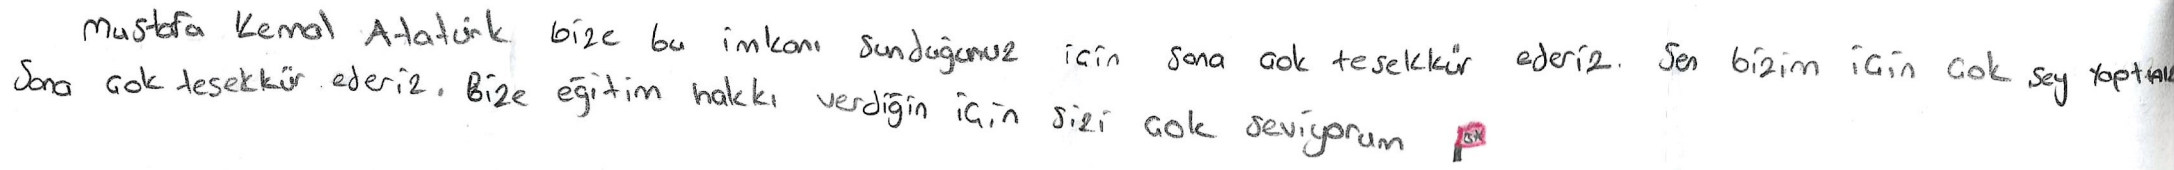 Mustafa Kemal Atatürk bize bu imkanı sunduğumuz için sana çok teşekkür ederiz. Sen bizim için çok şey
Sana çok teşekkür ederiz. Bize eğitim hakkı verdiğin için sizi çok seviyorum